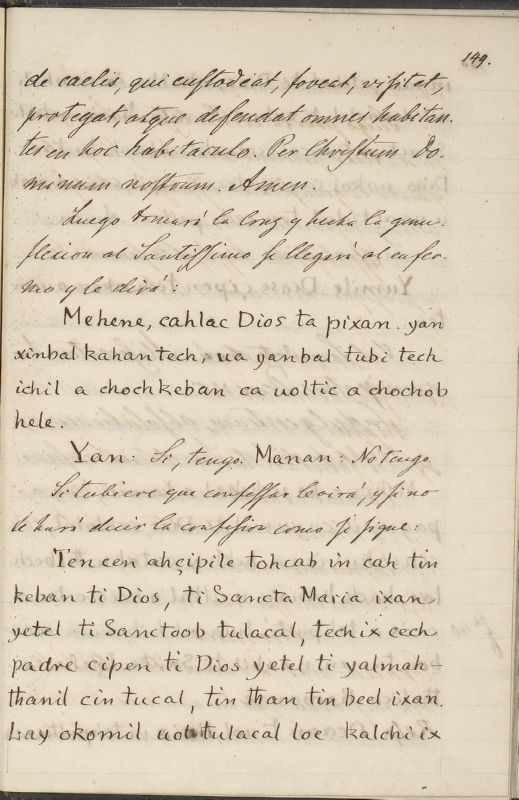 149.
de caelis, qui custodiat, foveat, visitet,
protegat, atque defendat omnes habitan.
tes in hoc habitaculo. Per Christum Do.
minum nostrum. Amen.
Luego tomará la Cruz y hecha la genu.
flexion al Santissimo se llegará al enfer.
mo y le dirá:
Mehene, cahlac Dios ta pixan. yan
xinbal kahantech, ua yanbal tubi tech
ichil a chochkeban ca uoltic a chochob
hele.
Yan: Si, tengo. Manan: No tengo.
Si tubiere que confessar le oirá, y si no
le hará decir la confesion como se sigue:
Tencen ahçipile tohcab in cah tin
keban ti Dios, ti Sancta Maria ixan
yetel ti Sanctoob tulacal, techix cech
padre cipen ti Dios yetel ti yalmah-
thanil cin tucal, tin than tin beel ixan.
Lay okomil uol tulacal loe kalchi ix